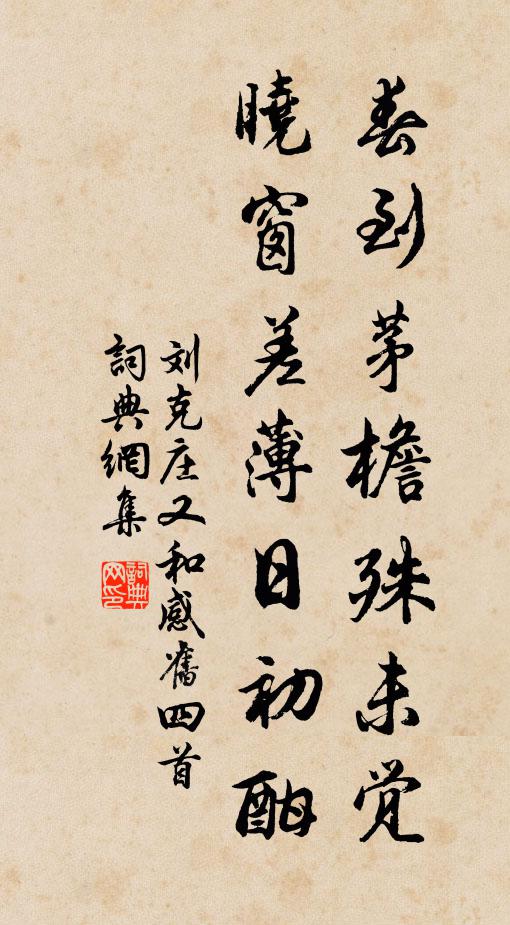 春到茅檐殊未觉
晓窗差薄日初酣
刘克庄又和感舊四首
詞典網集
詞典网印